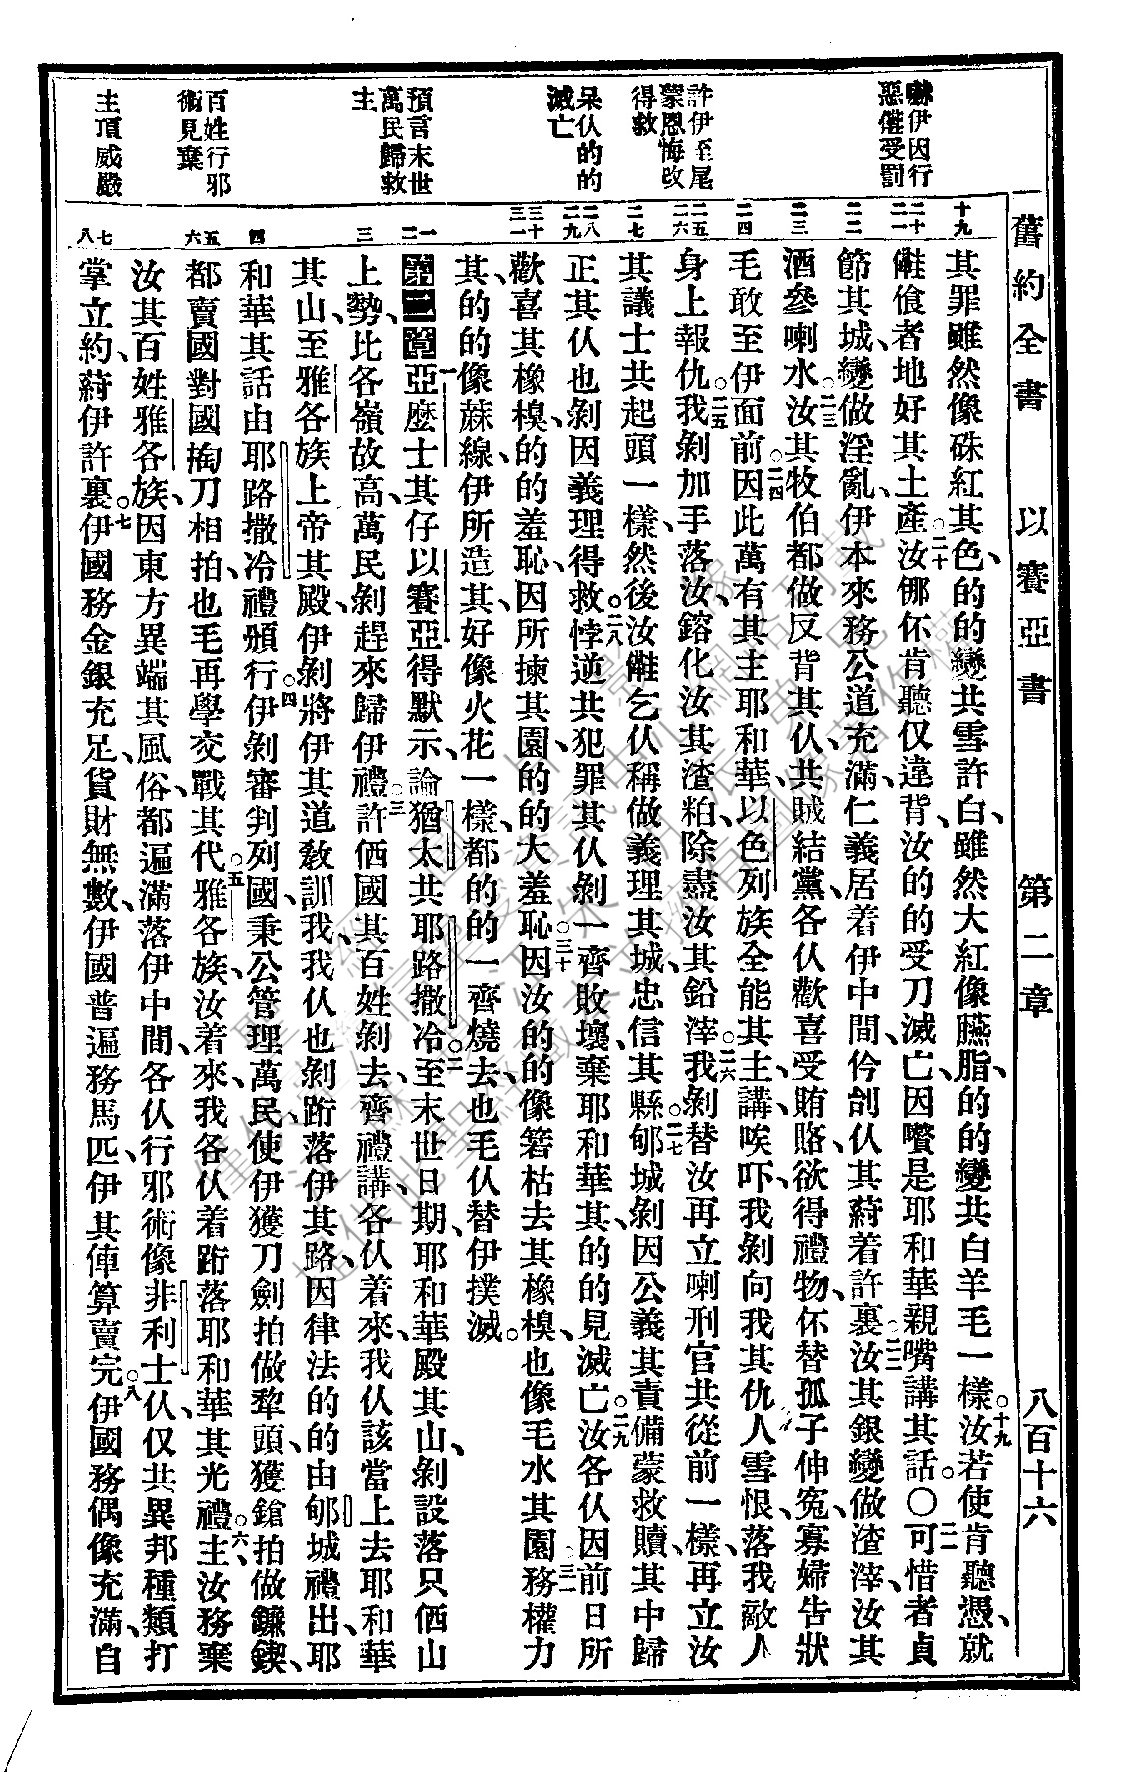 舊約全書 以賽亞書 第二章 八百十六
嚇伊因行
惡僫受罰
許伊至尾
蒙恩悔改
得救
呆仈的的
滅亡
預言末世
萬民歸救
主
百姓行邪
術見棄
主頂威嚴
十九
二十
二一
二二
二三
二四
二五
二六
二七
二八
二九
三十
三一
一
二
三
四
五
六
七
八
其罪雖然像硃紅其色、的的變共雪許白、雖然大紅像臙脂、的的變共白羊毛一樣。十九汝若使肯聽憑、就
儺飱者地好其土產。二十汝㑚伓肯聽仅違背、汝的的受刀滅亡、因嚽是耶和華親嘴講其話。○二一可惜者貞
節其城、變做淫亂、伊本來務公道充滿、仁義居着伊中間、仱刣仈其蔪着許裏。二二汝其銀變做渣滓、汝其
酒參喇水。二三汝其牧伯都做反背其仈、共賊結黨、各仈歡喜受賄賂、欲得禮物、伓替孤子伸冤、寡婦告狀
毛敢至伊面前。二四因此萬有其主耶和華、以色列族全能其主、講、唉吓、我剝向我其仇人雪恨、落我敵人
身上報仇。二五我剝加手落汝、鎔化汝其渣粕、除盡汝其鉛滓。二六我剝替汝再立喇刑官共從前一樣、再立汝
其議士共起頭一樣、然後汝儺乞仈稱做義理其城、忠信其縣。二七郇城剝因公義其責備蒙救贖、其中歸
正其仈也剝因義理得救。二八悖逆共犯罪其仈、剝一齊敗壞、棄耶和華其、的的見滅亡。二九汝各仈因前日所
歡喜其橡模、的的羞恥、因所揀其園、的的大羞恥。三十因汝的的像簪枯去其橡模、也像毛水其園。三一務權力
其、的的像蔴線、伊所造其、好像火花一樣、都的的一齊燒去、也毛仈替伊撲滅。
第二章 亞麼士其仔以賽亞得默示、論猶太共耶路撒冷。二至末世日期、耶和華殿其山、剝設落只佰山
上、勢比各嶺故高、萬民剝趕來歸伊禮。三許佰國其百姓剝去齊禮講、各仈着來、我仈該當上去耶和華
其山、至雅各族上帝其殿、伊剝將伊其道教訓我、我仈也剝跴落伊其路、因律法的的由郇城禮出、耶
和華其話由耶路撒冷禮頒行。四伊剝審判列國、秉公管理萬民、使伊獲刀劍拍做犂頭、獲鎗拍做鐮鍥、
都賣國對國掏刀相拍、也毛再學交戰其代。五雅各族汝着來、我各仈着跴落耶和華其光禮。六主汝務棄
汝其百姓雅各族、因東方異端其風俗、都遍滿落伊中間、各仈行邪術像非利士仈、仅共異邦種類打
掌立約、蔪伊許裏。七伊國務金銀充足、貨財無數、伊國普遍務馬匹、伊其俥算賣完。八伊國務偶像充滿、自